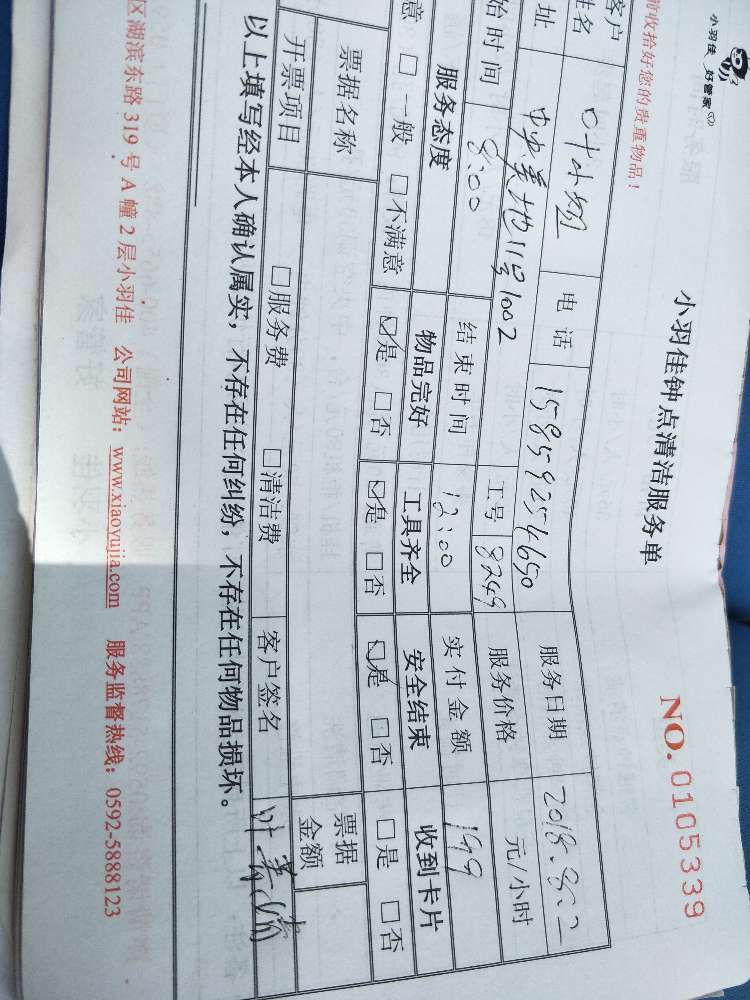 小羽佳 好管家
小羽佳钟点清洁服务单
NO.0105339
前收拾好您的贵重物品！
客户姓名 叶小姐 电话 15859254650 服务日期 2018.8.22
址 中央美地11号1002 工号 8249 服务价格 元/小时
始时间 8:00 结束时间 12:00 实付金额 199
服务态度 物品完好 工具齐全 安全结束 收到卡片
意 □一般 □不满意 ☑是 □否 ☑是 □否 ☑是 □否 □是 □否
票据名称 票据金额
开票项目 □服务费 □清洁费 客户签名
以上填写经本人确认属实，不存在任何纠纷，不存在任何物品损坏。
区湖滨东路 319 号 A 幢 2 层小羽佳 公司网站：www.xiaoyujia.com 服务监督热线：0592-5888123